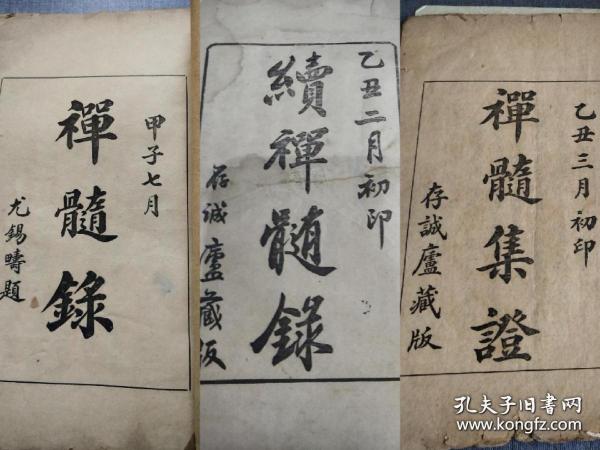 甲子七月
禪髓錄
尤錫疇題
乙丑二月初印
續禪髓錄
存誠廬藏版
乙丑三月初印
禪髓集證
存誠廬藏版
孔夫子旧书网
www.kongfz.com